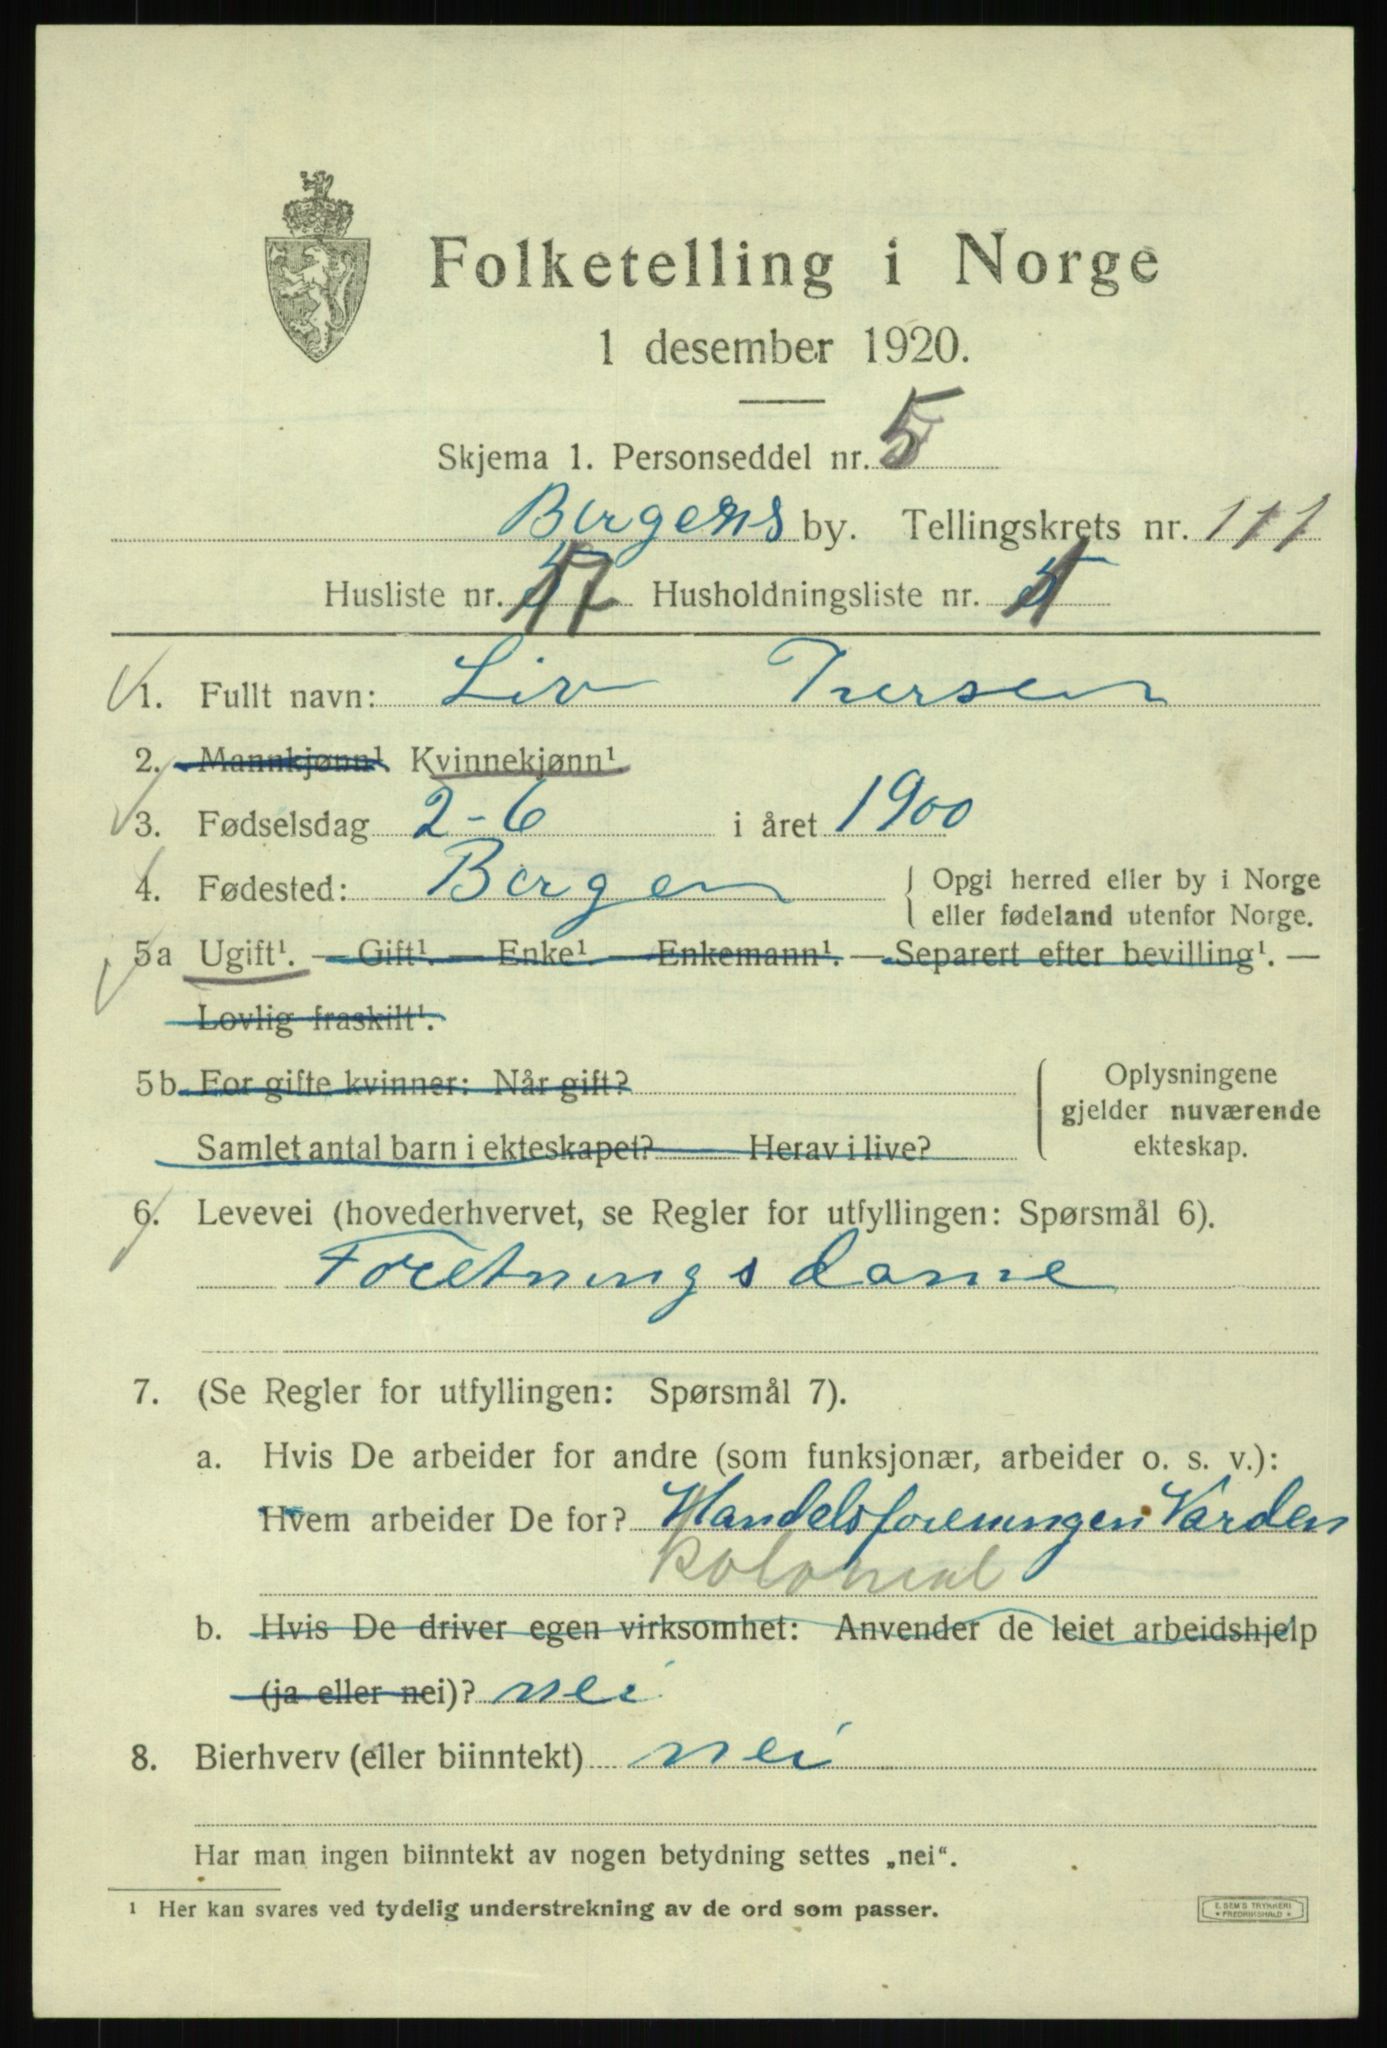 Folketelling i Norge
1 desember 1920.
Skjema 1. Personseddel nr. 5
Bergens by. Tellingskrets nr. 111
Husliste nr. 17 Husholdningsliste nr. 1
1. Fullt navn: Liv Iversen
2. Mannkjønn¹. Kvinnekjønn¹.
3. Fødselsdag 2-6 i året 1900
4. Fødested: Bergen { Opgi herred eller by i Norge
eller fødeland utenfor Norge.
5a Ugift¹. — Gift¹. — Enke¹. — Enkemann¹. — Separert efter bevilling¹. —
Lovlig fraskilt¹.
5b For gifte kvinner: Når gift?
Samlet antal barn i ekteskapet? Herav i live?
Oplysningene
gjelder nuværende
ekteskap.
6. Levevei (hovederhvervet, se Regler for utfyllingen: Spørsmål 6).
Foretningsdame
7. (Se Regler for utfyllingen: Spørsmål 7).
a. Hvis De arbeider for andre (som funksjonær, arbeider o. s. v.):
Hvem arbeider De for? Handelsforeningen Varden
Kolonial
b. Hvis De driver egen virksomhet: Anvender de leiet arbeidshjelp
(ja eller nei)? nei
8. Bierhverv (eller biinntekt) nei
Har man ingen biinntekt av nogen betydning settes „nei“.
¹ Her kan svares ved tydelig understrekning av de ord som passer.
E. SEM'S TRYKKERI
* FREDRIKSHALD *